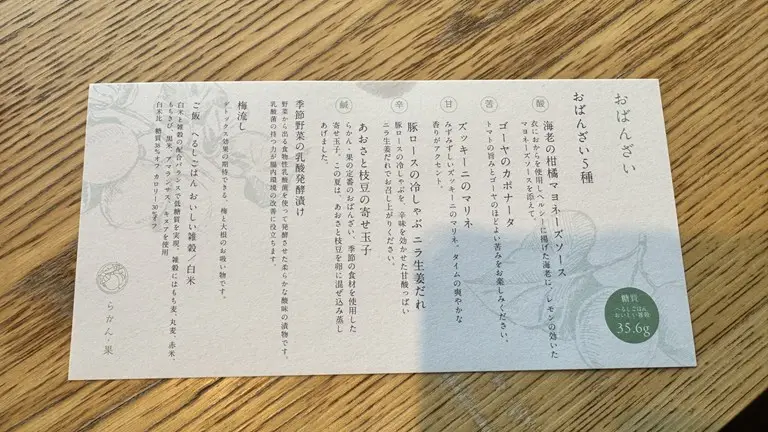 おばんざい
おばんざい5種
酸
海老の柑橘マヨネーズソース
衣におからを使用しヘルシーに揚げた海老に、レモンの効いた
マヨネーズソースを添えて。
苦
ゴーヤのカポナータ
トマトの旨みとゴーヤのほどよい苦みをお楽しみください。
甘
ズッキーニのマリネ
みずみずしいズッキーニのマリネ。タイムの爽やかな
香りがアクセント。
辛
豚ロースの冷しゃぶ ニラ生姜だれ
豚ロースの冷しゃぶを、辛味を効かせた甘酸っぱい
ニラ生姜だれでお召し上がりください。
鹹
あおさと枝豆の寄せ玉子
らかん・果の定番のおばんざい、季節の食材を使用した
寄せ玉子。この夏は、あおさと枝豆を卵に混ぜ込み蒸し
あげました。
季節野菜の乳酸発酵漬け
野菜から出る食物性乳酸菌を使って発酵させた柔らかな酸味の漬物です。
乳酸菌の持つ力が腸内環境の改善に役立ちます。
梅流し
デトックス効果の期待できる、梅と大根のお吸い物です。
ご飯 へるしごはん おいしい雑穀/白米
白米と雑穀の配合バランスで低糖質を実現。雑穀にはもち麦、丸麦、赤米、
もちきび、黒米、アマランサス、キヌアを使用
白米比 糖質35%オフ カロリー30%オフ
糖質
へるしごはん
おいしい雑穀
35.6g
らかん・果